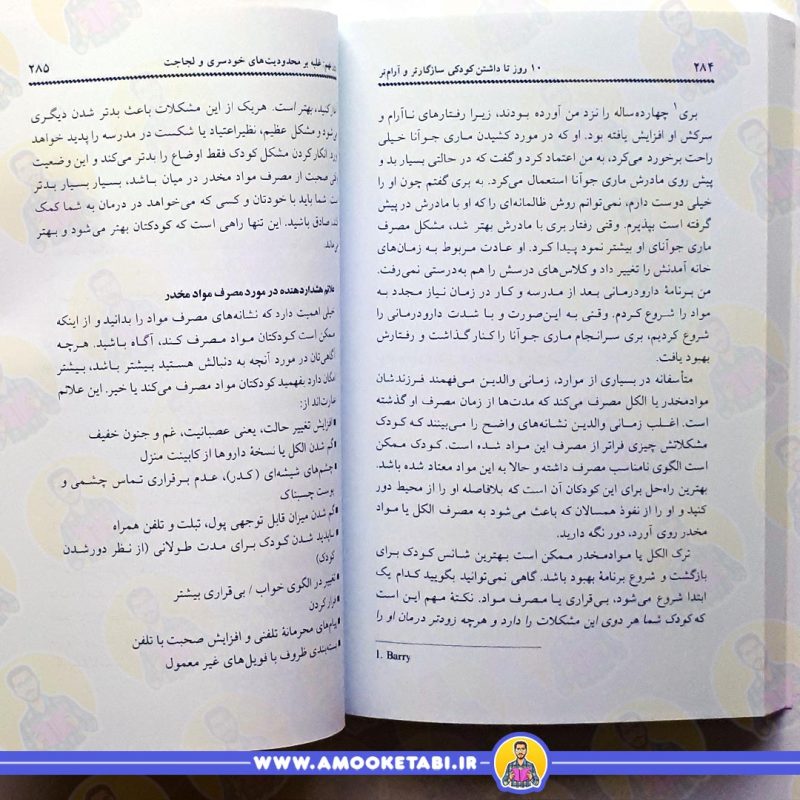 ۲۸۴
۱۰ روز تا داشتن کودکی سازگارتر و آرام‌تر
بری¹ چهارده‌ساله را نزد من آورده بودند، زیرا رفتارهای ناآرام و
سرکش او افزایش یافته بود. او که در مورد کشیدن ماری جوآنا خیلی
راحت برخورد می‌کرد، به من اعتماد کرد و گفت که در حالتی بسیار بد و
پیش روی مادرش ماری جوآنا استعمال می‌کرد. به بری گفتم چون او را
خیلی دوست دارم، نمی‌توانم روش ظالمانه‌ای را که او با مادرش در پیش
گرفته است بپذیرم. وقتی رفتار بری با مادرش بهتر شد، مشکل مصرف
ماری جوآنای او بیشتر نمود پیدا کرد. او عادت مربوط به زمان‌های
خانه آمدنش را تغییر داد و کلاس‌های درسش را هم به‌درستی نمی‌رفت.
من برنامهٔ دارودرمانی بعد از مدرسه و کار در زمان نیاز مجدد به
مواد را شروع کردم. وقتی به این‌صورت و با شدت دارودرمانی را
شروع کردیم، بری سرانجام ماری جوآنا را کنار گذاشت و رفتارش
بهبود یافت.
متأسفانه در بسیاری از موارد، زمانی والدین می‌فهمند فرزندشان
موادمخدر یا الکل مصرف می‌کند که مدت‌ها از زمان مصرف او گذشته
است. اغلب زمانی والدین نشانه‌های واضح را می‌بینند که کودک
مشکلاتش چیزی فراتر از مصرف این مواد شده است. کودک ممکن
است الگوی نامناسب مصرف داشته و حالا به این مواد معتاد شده باشد.
بهترین راه‌حل برای این کودکان آن است که بلافاصله او را از محیط دور
کنید و او را از نفوذ همسالان که باعث می‌شود به مصرف الکل یا مواد
مخدر روی آورد، دور نگه دارید.
ترک الکل یا موادمخدر ممکن است بهترین شانس کودک برای
بازگشت و شروع برنامهٔ بهبود باشد. گاهی نمی‌توانید بگویید کدام یک
ابتدا شروع می‌شود، بی‌قراری یا مصرف مواد. نکتهٔ مهم این است
که کودک شما هر دوی این مشکلات را دارد و هرچه زودتر درمان او را
1. Barry
غلبه بر محدودیت‌های خودسری و لجاجت
۲۸۵
کنید، بهتر است. هریک از این مشکلات باعث بدتر شدن دیگری
و مشکل عظیم، نظیر اعتیاد یا شکست در مدرسه را پدید خواهد
انکار کردن مشکل کودک فقط اوضاع را بدتر می‌کند و این وضعیت
صحبت از مصرف مواد مخدر در میان باشد، بسیار بسیار بدتر
شما باید با خودتان و کسی که می‌خواهد در درمان به شما کمک
صادق باشید. این تنها راهی است که کودکتان بهتر می‌شود و بهتر
علائم هشداردهنده در مورد مصرف مواد مخدر
خیلی اهمیت دارد که نشانه‌های مصرف مواد را بدانید و از اینکه
ممکن است کودکتان مواد مصرف کند، آگاه باشید. هرچه
آگاهی‌تان در مورد آنچه به دنبالش هستید بیشتر باشد، بیشتر
امکان دارد بفهمید کودکتان مواد مصرف می‌کند یا خیر. این علائم
عبارت‌اند از:
افزایش تغییر حالت، یعنی عصبانیت، غم و جنون خفیف
گم شدن الکل یا نسخهٔ داروها از کابینت منزل
چشم‌های شیشه‌ای (کدر)، عدم برقراری تماس چشمی و
پوست چسبناک
گم شدن میزان قابل توجهی پول، تبلت و تلفن همراه
ناپدید شدن کودک برای مدت طولانی (از نظر دورشدن
کودک)
تغییر در الگوی خواب / بی‌قراری بیشتر
فرار کردن
پیام‌های محرمانهٔ تلفنی و افزایش صحبت با تلفن
بسته‌بندی ظروف با فویل‌های غیر معمول
WWW.AMOOKETABI.IR